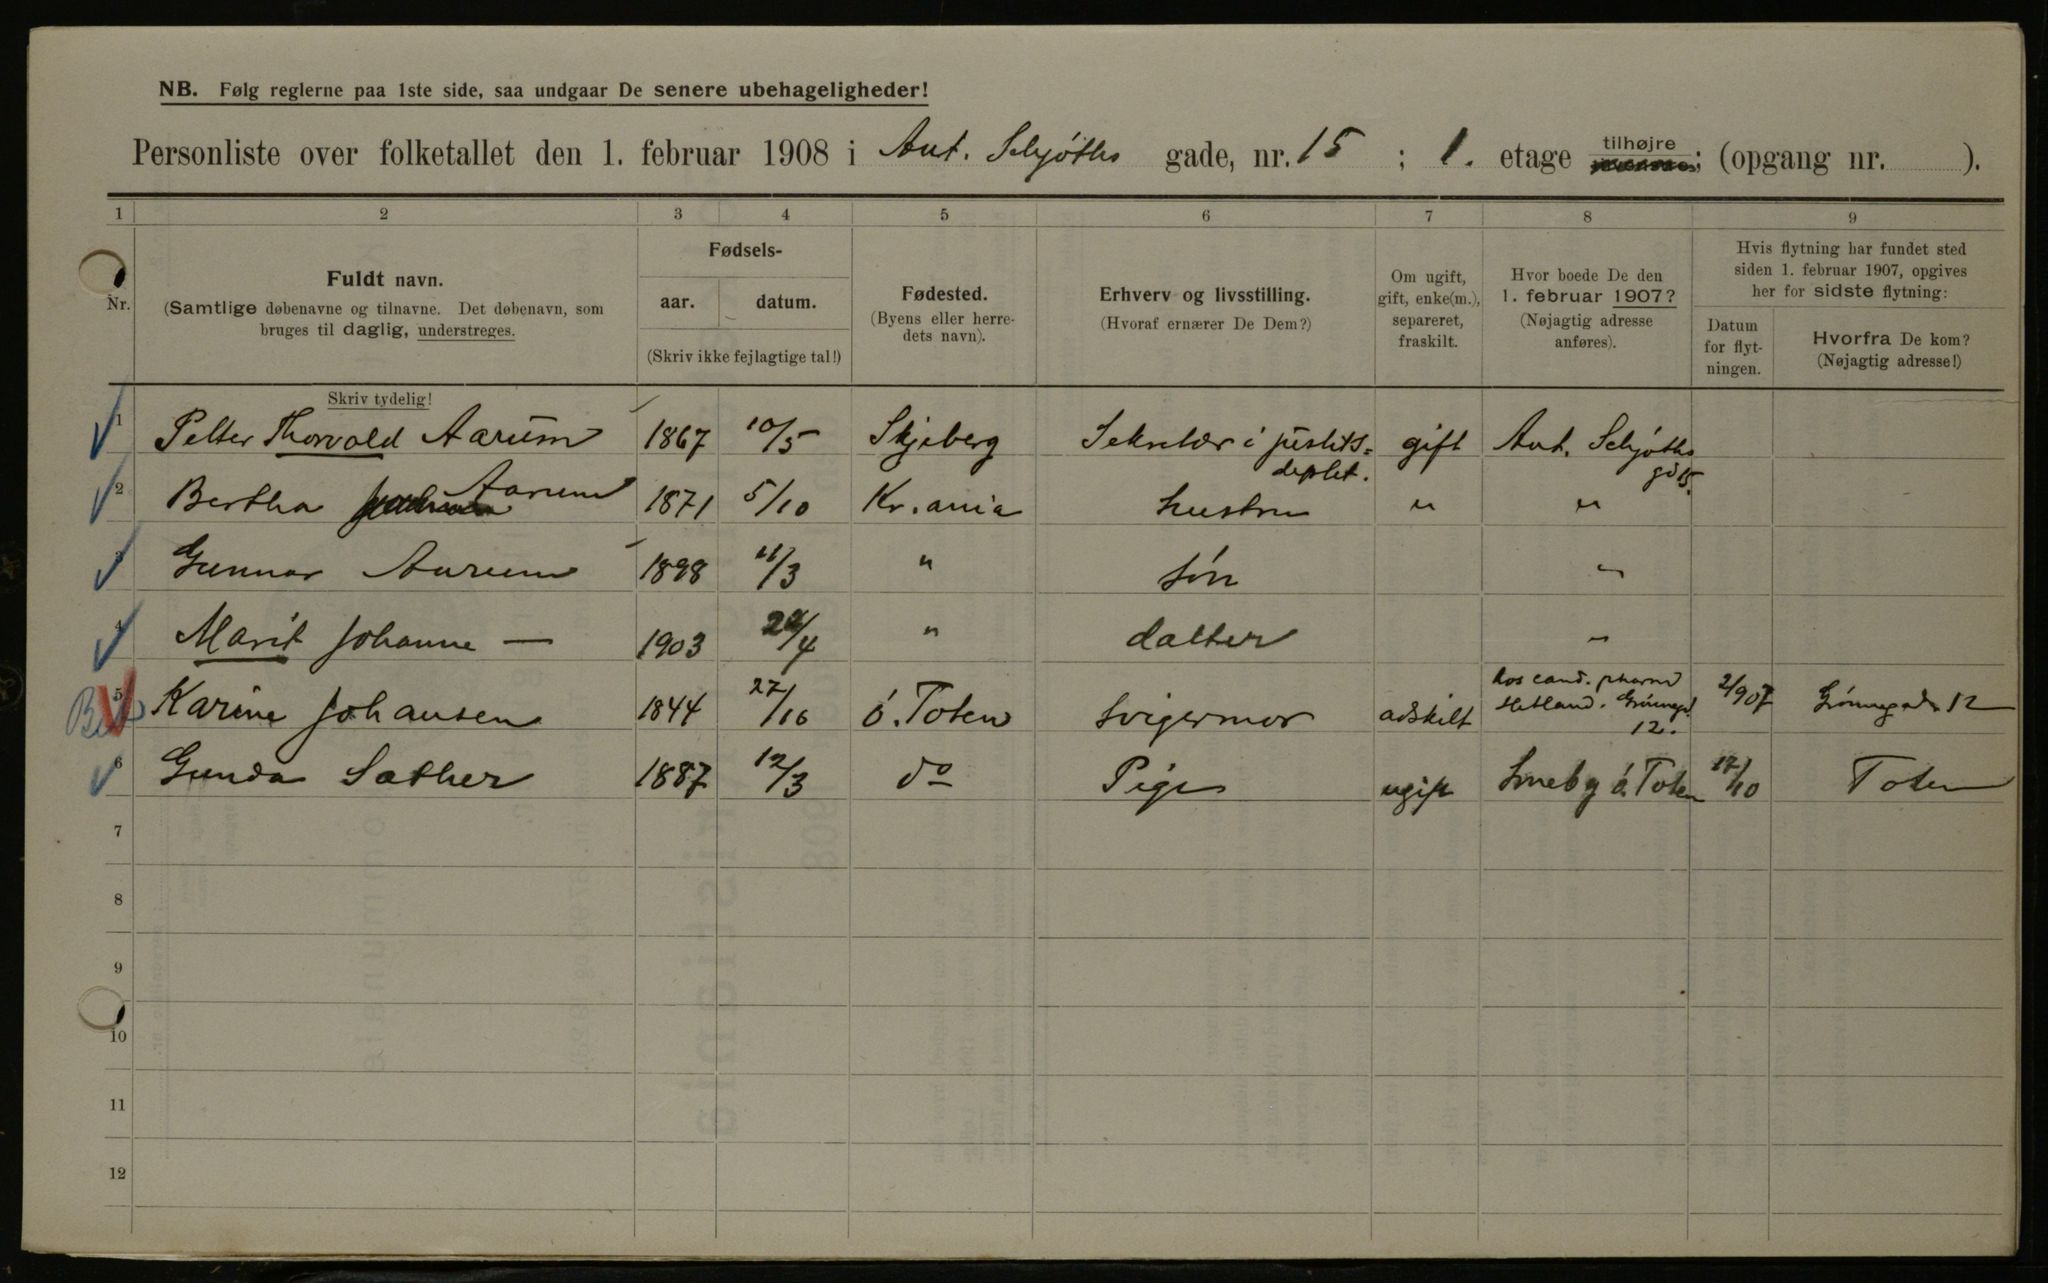 NB. Følg reglerne paa 1ste side, saa undgaar De senere ubehageligheder!
Personliste over folketallet den 1. februar 1908 i Ant. Schjøths gade, nr. 15 ; 1. etage tilhøjre ; (opgang nr. ).
1 2 3 4 5 6 7 8 9
Nr.
Fuldt navn.
(Samtlige døbenavne og tilnavne. Det døbenavn, som
bruges til daglig, understreges.
Fødsels-
aar. datum.
(Skriv ikke fejlagtige tal!)
Fødested.
(Byens eller herre-
dets navn).
Erhverv og livsstilling.
(Hvoraf ernærer De Dem?)
Om ugift,
gift, enke(m.),
separeret,
fraskilt.
Hvor boede De den
1. februar 1907?
(Nøjagtig adresse
anføres).
Hvis flytning har fundet sted
siden 1. februar 1907, opgives
her for sidste flytning:
Datum
for flyt-
ningen.
Hvorfra De kom?
(Nøjagtig adresse!)
Skriv tydelig!
1 Petter Thorvald Aarum 1867 10/5 Skjeberg Sekretær i justits= deptet. gift Ant. Schjøths gd 15.
2 Bertha Aarum 1871 5/10 Kr.ania hustru " "
3 Gunnar Aarum 1898 11/3 " søn "
4 Marit Johanne — 1903 /4 " datter "
5 Karine Johansen 1844 27/10 ø. Toten Svigermor adskilt hos cand. pharm Hetland. Grønnegd. 12. 2/907 Grønnegade 12
6 Gunda Sæther 1887 12/3 do Pige ugift Smeby ø. Toten 17/10 Toten
7
8
9
10
11
12